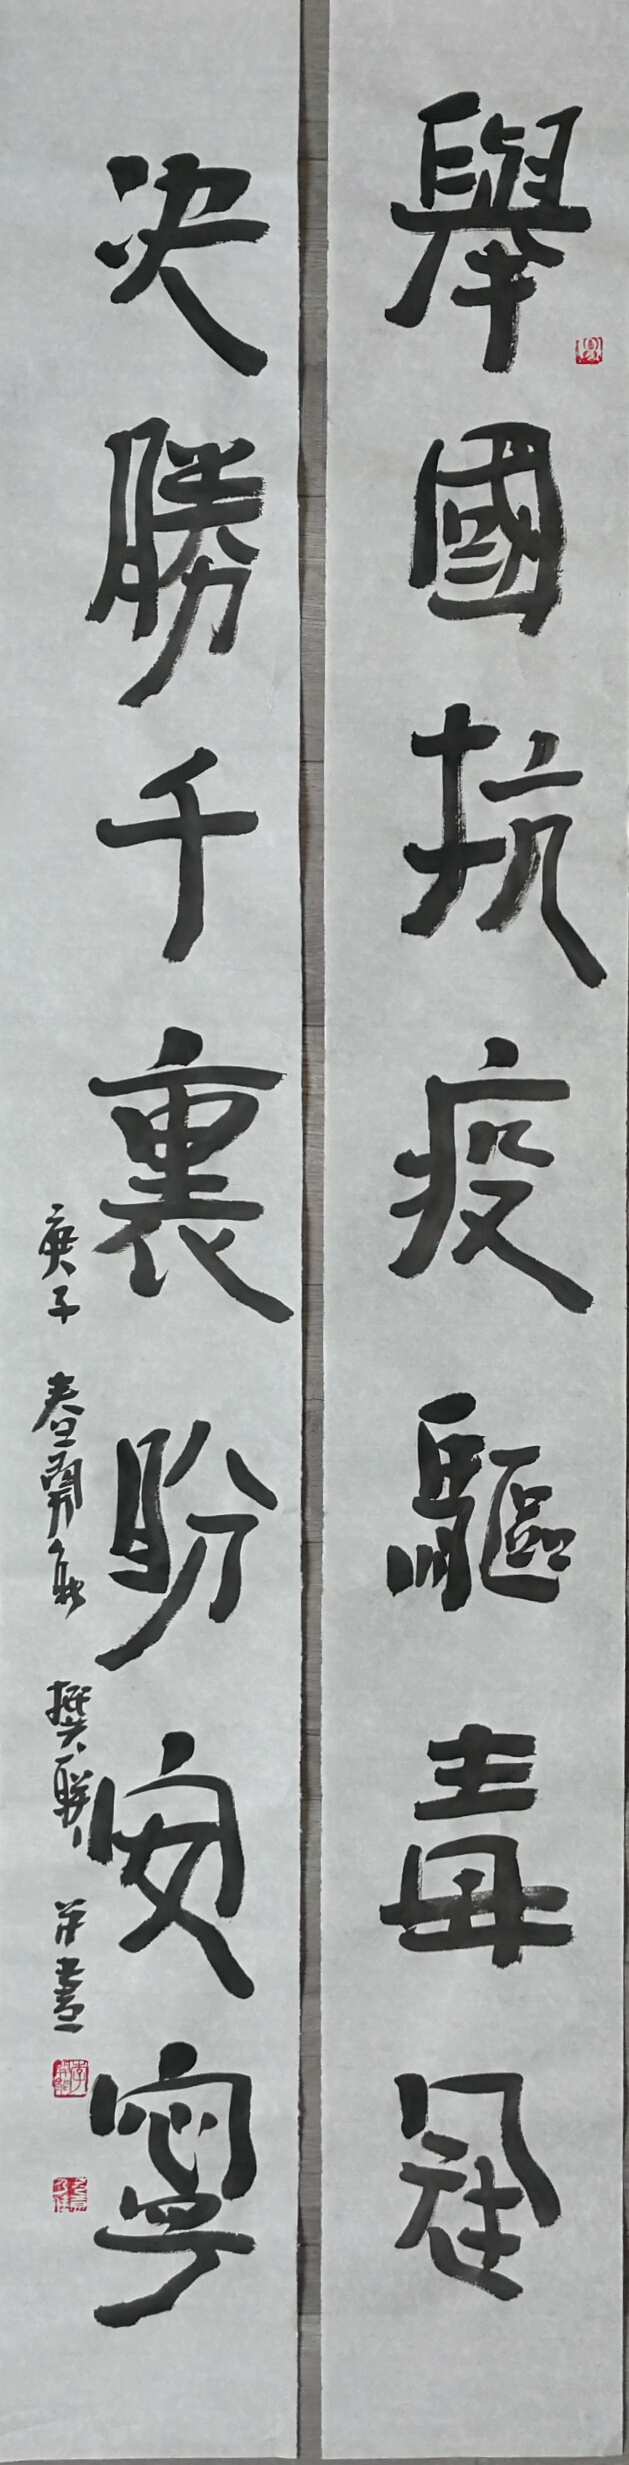 舉國抗疫驅毒冠
決勝千裏盼安寧
庚子春月開能撰聯并書